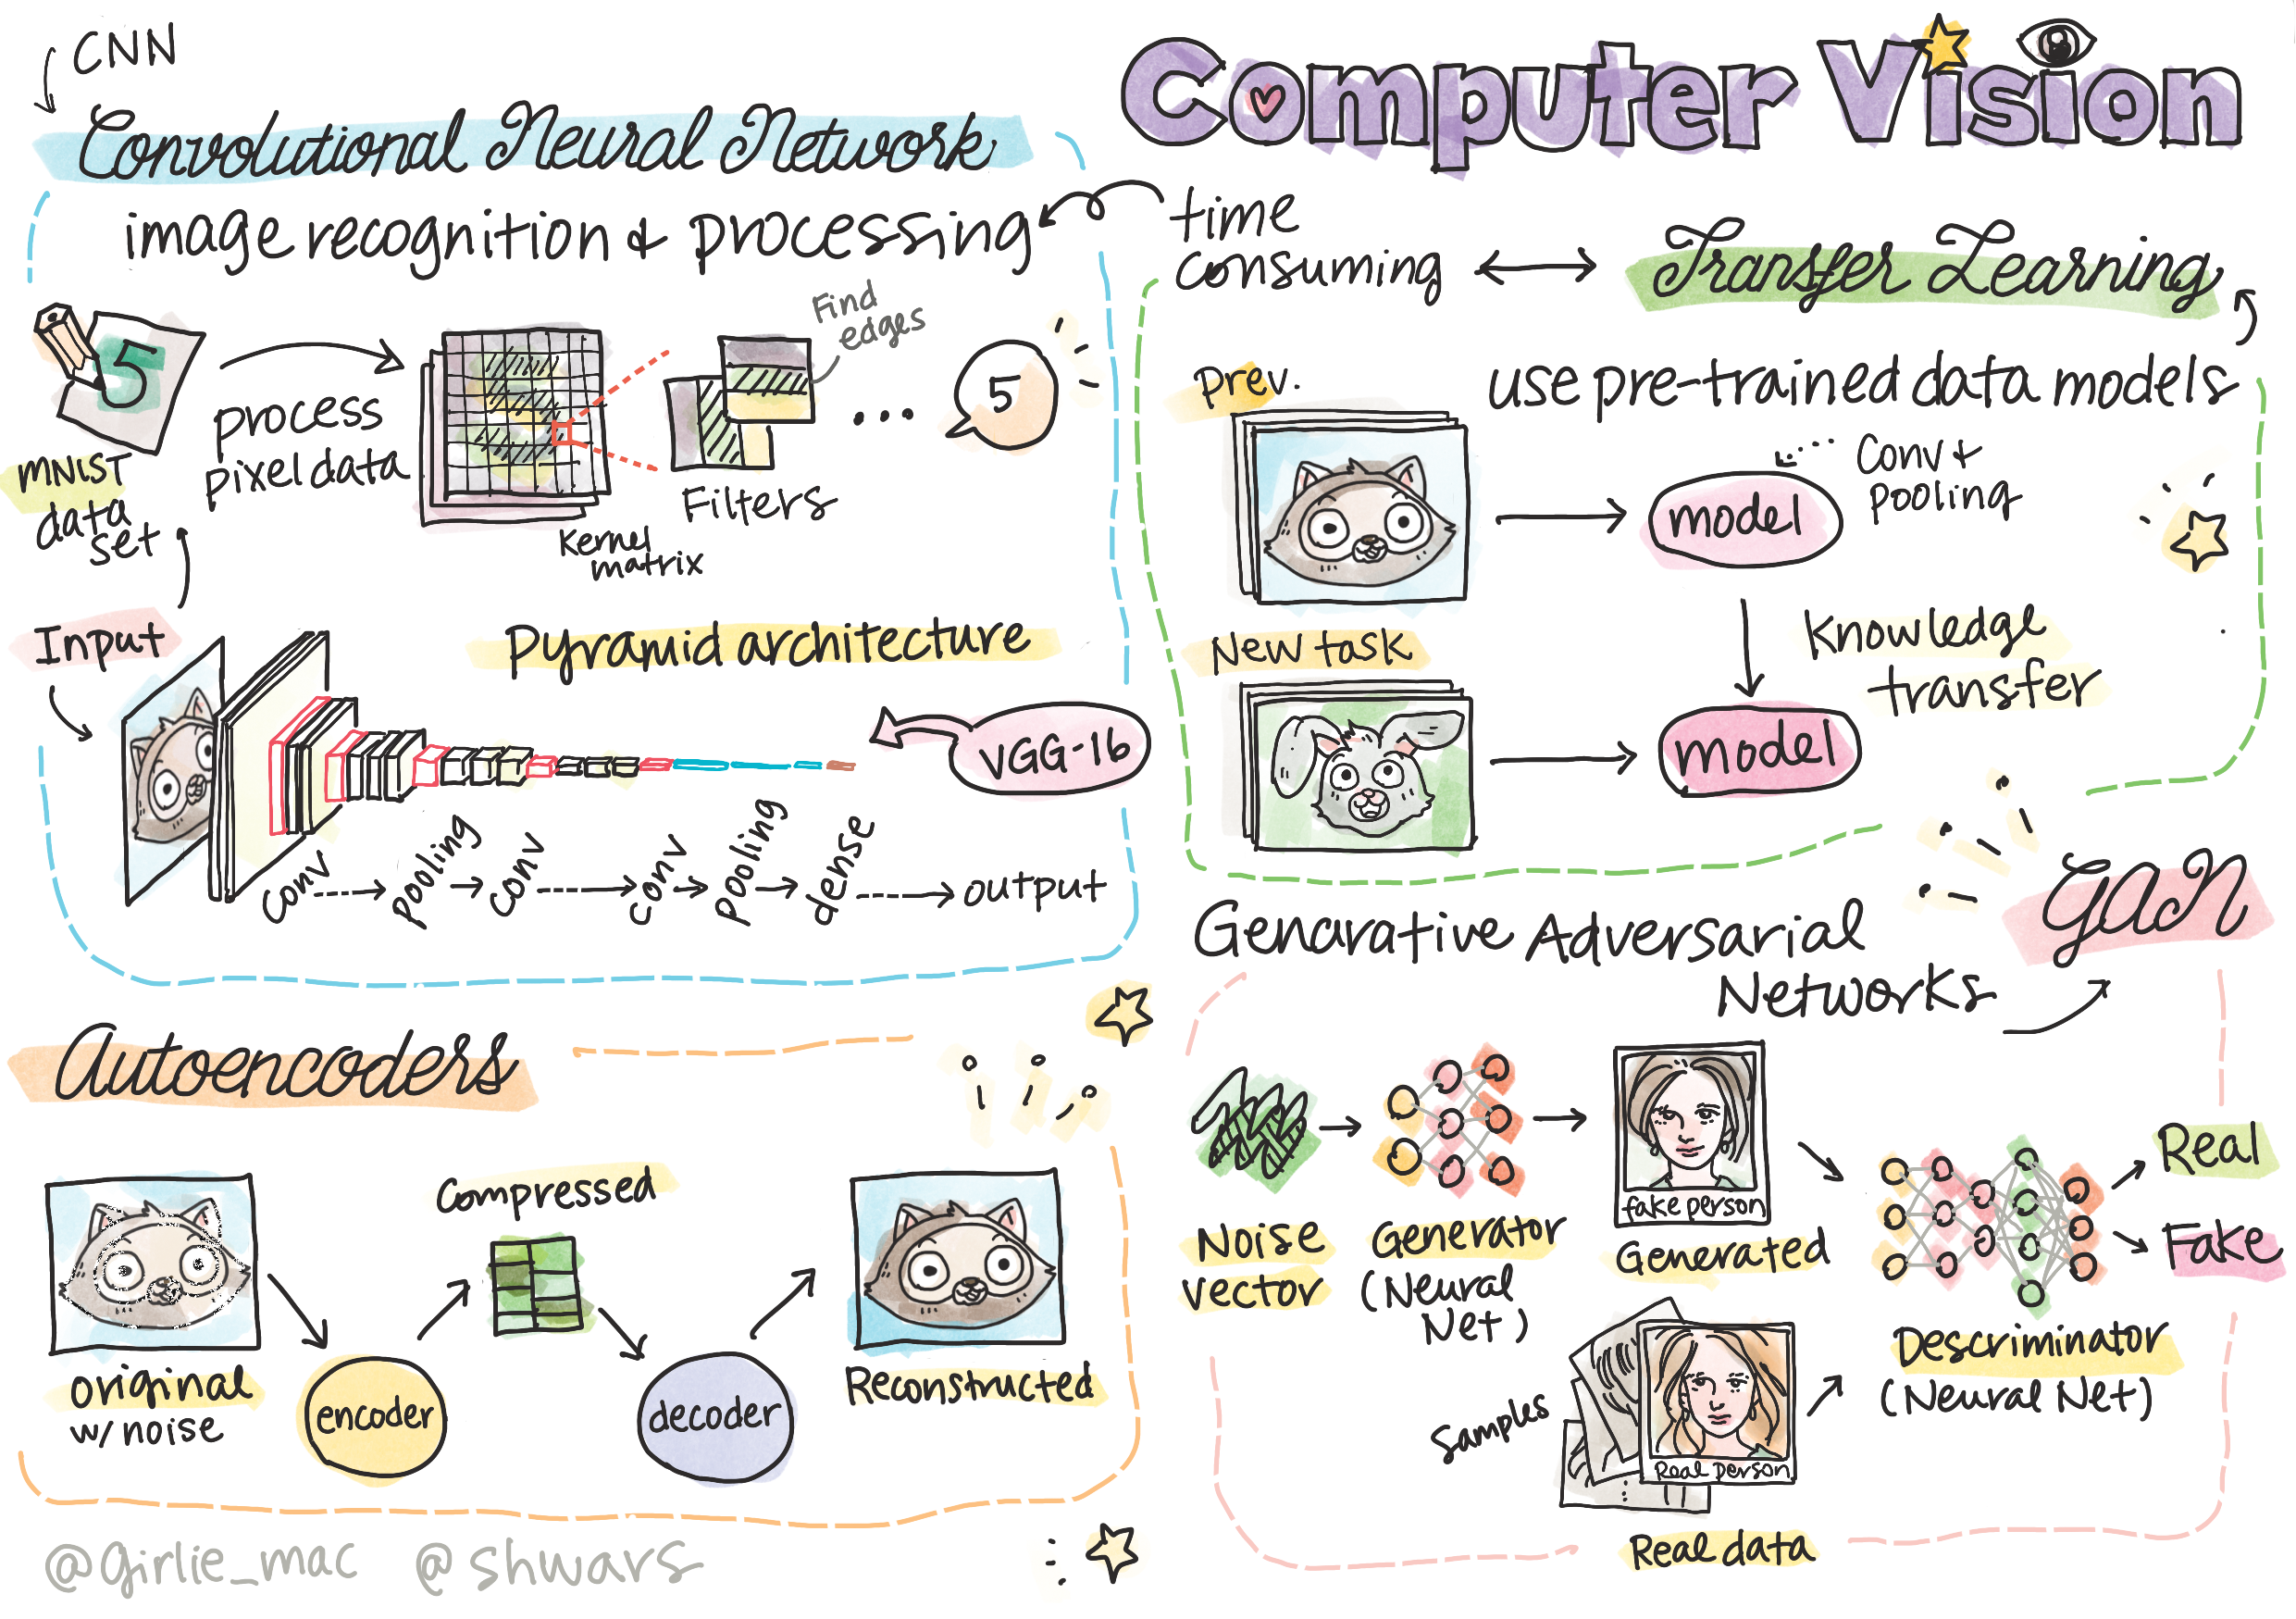 CNN
Convolutional Neural Network
image recognition & processing
5
MNIST
data
set
process
pixel data
Kernel
matrix
Find
edges
Filters
...
5
Input
Pyramid architecture
VGG-16
conv
pooling
conv
conv
pooling
dense
output
Computer Vision
time
consuming
Transfer Learning
use pre-trained data models
prev.
model
Conv &
pooling
Knowledge
transfer
New task
model
Autoencoders
original
w/ noise
encoder
Compressed
decoder
Reconstructed
Genarative Adversarial
Networks
GAN
Noise
vector
Generator
(Neural
Net)
fake person
Generated
Samples
Real person
Real data
Descriminator
(Neural Net)
Real
Fake
@girlie_mac @shwars